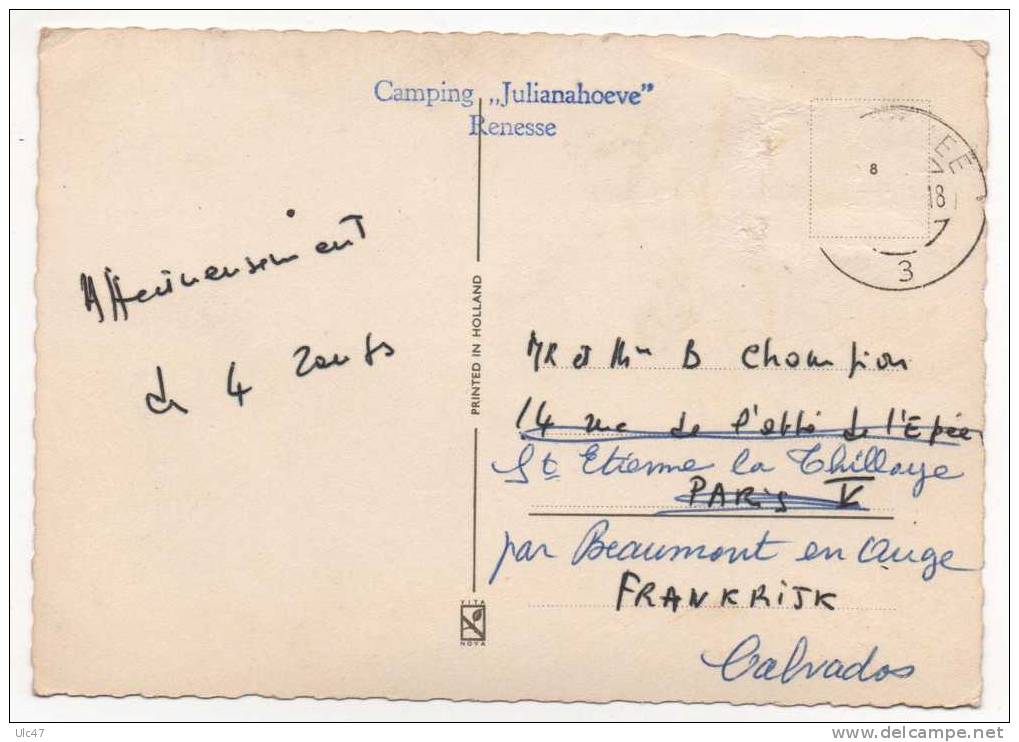 Camping „Julianahoeve”
Renesse
8
EE
18
3
Affectueusement
de 4
PRINTED IN HOLLAND
VITA
NOVA
MR et Mme B Champion
14 rue de l'abbé de l'Epée
St Etienne la Thillaye
PARIS V
par Beaumont en Auge
FRANKRIJK
Calvados
Ulc47
www.delcampe.net